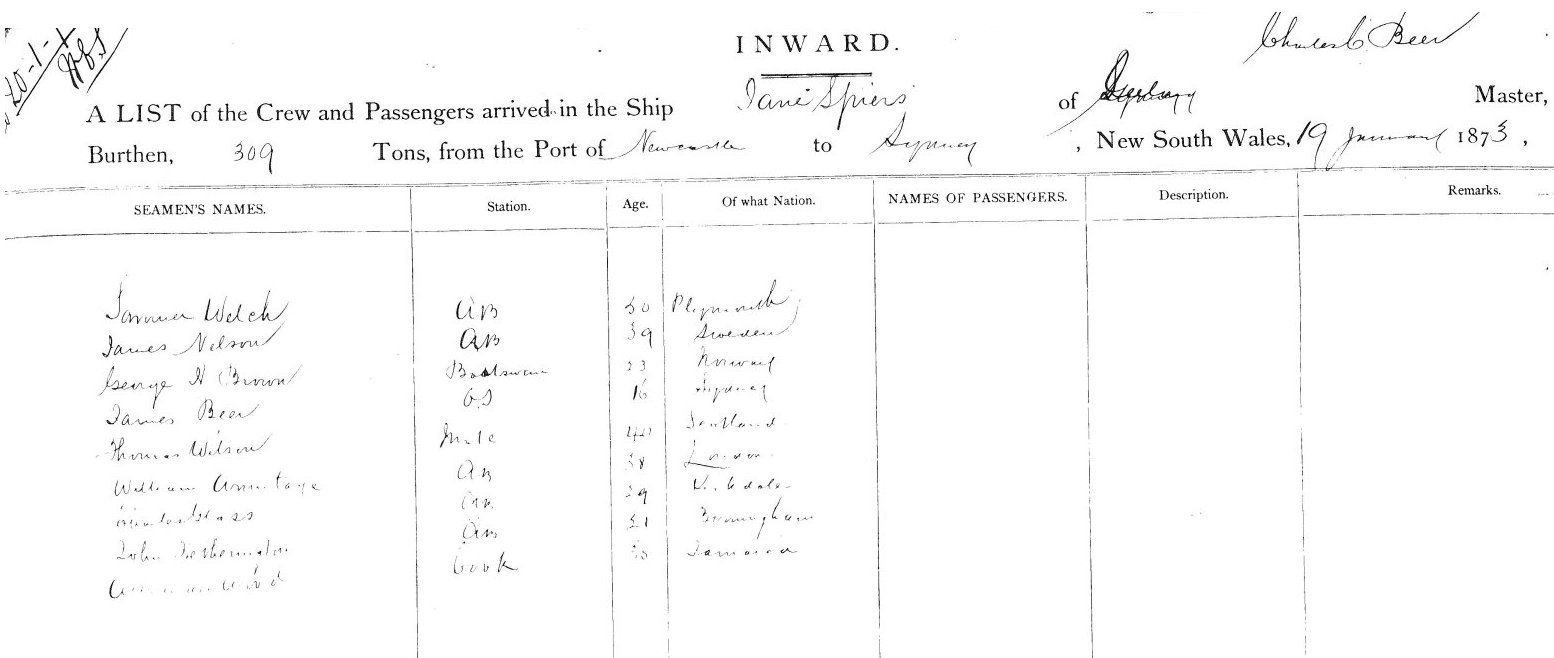 20-1-
INWARD.
Charles C Beer
A LIST of the Crew and Passengers arrived in the Ship Jane Spiers of Sydney Master,
Burthen, 309 Tons, from the Port of Newcastle to Sydney, New South Wales, 19 January 1873,
SEAMEN'S NAMES. Station. Age. Of what Nation. NAMES OF PASSENGERS. Description. Remarks.
Welch AB 30 Plymouth
James Nelson AB 39 Sweden
George H Brown Boatswain 23 Norway
James Beer OS 16 Sydney
Thomas Wilson Mate 40 Scotland
William Armitage AB 38 London
AB 29
John AB Birmingham
Cook Jamaica